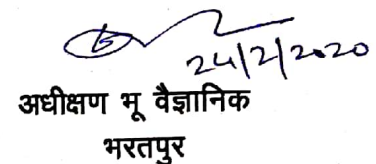 24/2/2020
अधीक्षण भू वैज्ञानिक
भरतपुर